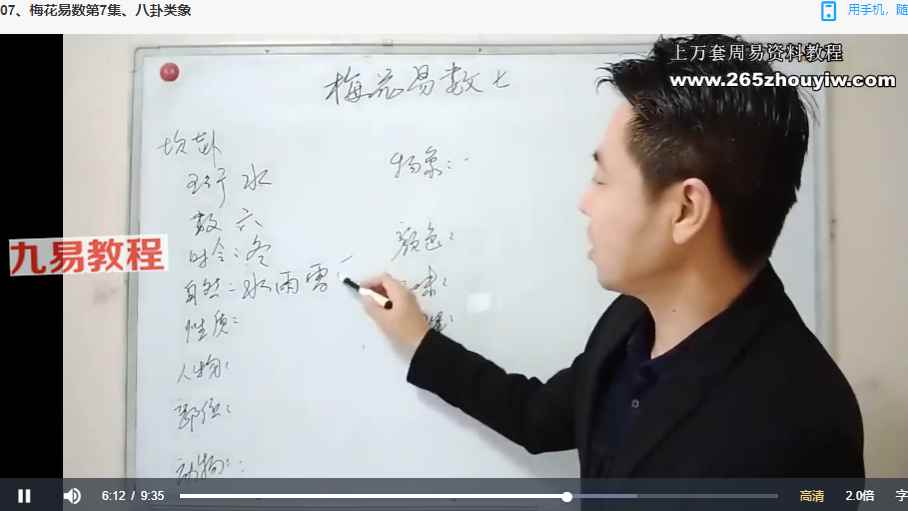 07、梅花易数第7集、八卦类象
用手机，随
上万套周易资料教程
www.265zhouyiw.com
梅花易数七
坎卦
五行 水
数 六
时令：冬
自然：水雨雪
性质：
人物：
动物：
物象：
颜色：
味：
九易教程
6:12 / 9:35
高清
2.0倍
字